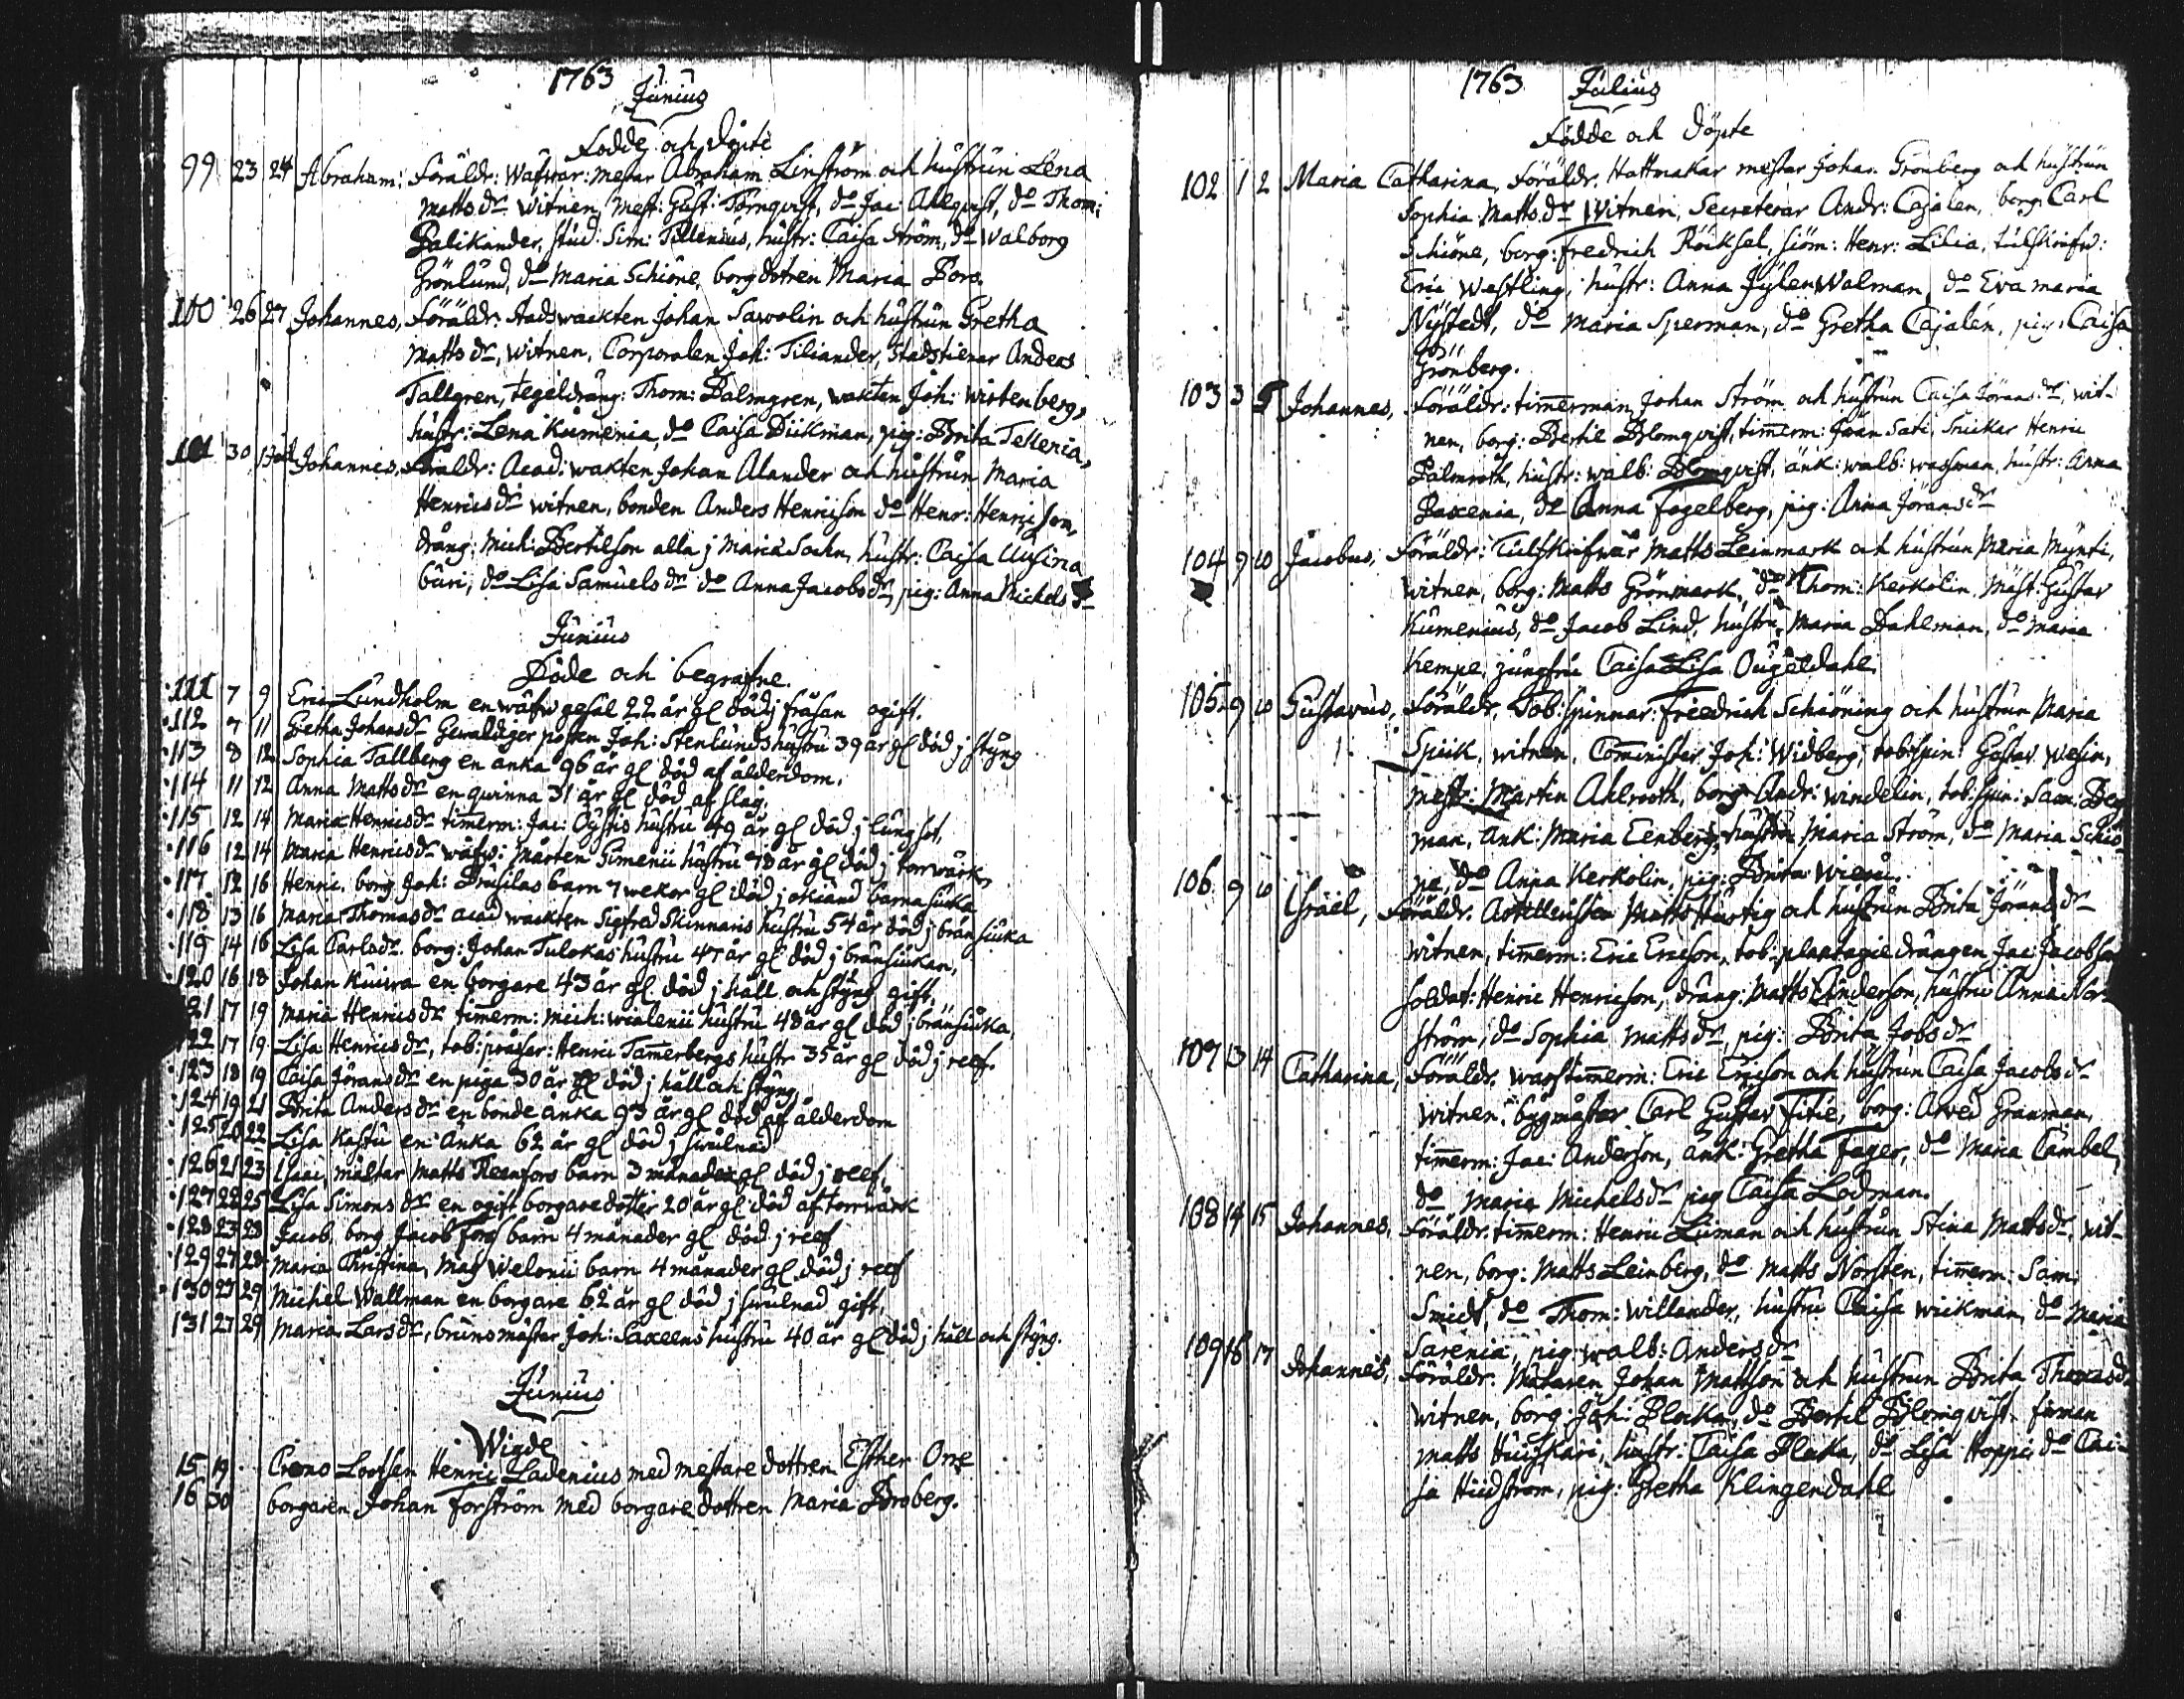 1763
Junius
Födde och Döpte
99 23 24 Abraham: Föräldr: Wäfwar: mestar Abraham Linström och hustrun Lena
Matts dr witnen, Mest: Gust: Törnqvist, do Jac: Ahlqvist, do Thom:
Palikander, stud: Sim: Tillenius, hustr: Caisa Ström, do Walborg
Grönlund, do Maria Schiöne, borg dotren Maria Bors.
100 26 27 Johannes, Föräldr: Stadswackten Johan Sawolin och hustrun Gretha
Matts dr, witnen, Corporalen Joh: Tiliander, Stadstienar Anders
Tallgren, tegeldräng: Thom: Palmgren, wakten Joh: wirtenberg,
hustr: Lena Kumenia, do Caisa Diikman, pig: Brita Telleria,
101 30 Johannes, Föräldr: Acad: wakten Johan Alander och hustrun Maria
Henrics dr witnen, bonden Anders Henricson do Henr: Henricson,
dräng: Mich: Bertilson alla j Mariæ Sochn, hustr: Caisa
buri, do Lisa Samuels dr do Anna Jacobs dr, pig: Anna Michels dr
Junius
Döde och begrafne.
111 7 9 Eric Lundholm en wäfw gesäl 22 år gl död j fråsan ogift.
112 7 11 Gretha Johans dr Gewaldiger posten Joh: Stenlunds hustru 39 år gl död j styng
113 8 12 Sophia Tallberg en änka 96 år gl död af ålderdom.
114 11 12 Anna Matts dr en qwinna 31 år gl död af slag.
115 12 14 Maria Henrics dr timerm: Jac: Oystis hustru 49 år gl död j lungsot,
116 12 14 Maria Henrics dr wäfw: Mårten Simenii hustru 78 år gl död j torrwärk,
117 12 16 Henric, borg Joh: Brusilas barn 7 wekor gl död j okiänd barnasiuka
118 13 16 Maria Thomas dr acad wackten Sigfred Skinnaris hustru 54 år död j brän siuka
119 14 16 Lisa Carls dr borg: Johan Tulokas hustru 47 år gl död j bränsiukan,
120 16 18 Johan Kuiwa en borgare 43 år gl död j håll och styng gift,
121 17 19 Maria Henrics dr timerm: Mich: wialenii hustru 48 år gl död j bränsiuka,
122 17 19 Lisa Henrics dr, tob: prässer: Henric Tamerbergs hustr 35 år gl död j reef.
123 18 19 Caisa Jörans dr en piga 30 år gl död j håll och styng,
124 19 21 Brita Anders dr en bonde änka 93 år gl död af ålderdom
125 20 22 Lisa Kastu en änka 62 år gl död j swulnad
126 21 23 Isaac, mästar Matts Reenfors barn 3 månader gl död j reef,
127 22 25 Lisa Simons dr en ogift borgaredotter 20 år gl död af torrwärk
128 23 28 Jacob, borg Jacob Fors barn 4 månader gl död j reef
129 27 28 Maria Christina, Mag Welonii barn 4 månader gl död j reef
130 27 29 Michel Wallman en borgare 62 år gl död j swulnad gift,
131 27 29 Maria Lars dr, brunsmästar Joh: Saxeens hustru 40 år gl död j håll och styng.
Junius
Wigde
15 19 Crono Lootsen Henric Ladenius med mestare dottren Esther One
16 30 borgaren Johan Forström med borgare dottren Maria Broberg.
1763 Julius
Födde och Döpte
102 1 2 Maria Catharina, Föräldr: Hattmakar mestar Johan Grönberg och hustrun
Sophia Matts dr Witnen, Secreterar Andr: Cajalen, borg: Carl
Schiöne, borg: Fredrich Röiksel, siöm: Henr: Lilia, tulskrifw:
Eric Westling, hustr: Anna Walman, do Eva maria
Nystedt, do Maria Sperman, do Gretha Cajalén, pig: Caisa
Grönberg.
103 3 5 Johannes, Föräldr: timerman Johan Ström och hustrun Caisa Jörans dr, wit-
nen, borg: Bertil Blomqvist, timerm: Jöan Sati, Snickar Henric
Palmroth, hustr: walb: Blomqvist, änk: walb: wassman, hustr: Anna
Paxenia, do Anna Fogelberg, pig: Anna Jörans dr
104 9 10 Jacobus, Föräldr: Tulskrifwar Matts Leinmark och hustrun Maria Mynti,
witnen, borg: Matts Grönmark, do Thom: Kerkolin, Mäst: Gustav
Kumenius, do Jacob Lind, hustru Maria Dahlman, do Maria
Kempe, jungfru Caisa Lisa Ougeldahl.
105 9 10 Gustavus, Föräldr: Tob: Spinnar: Friedrich Schiöning och hustrun Maria
Spiik, witnen, Cominister Joh: Widberg, tobspin: Gustav wesin,
mest: Martin Ahlrooth, borg Andr: windelin, tob: spin: Sam: Berg
man, änk: Maria Eenberg, hustru Maria Ström, do Maria Schiö-
ne, do Anna Kerkolin, pig: Brita Wieru.
106 9 10 Israel, Föräldr: Artilleristen Matts Hurtig och hustrun Brita Jörans dr
witnen, timerm: Eric Ericson, tob: plantagie drängen Jac: Jacobson
soldat: Henric Henricson, dräng: Matts Anderson, hustru Anna Nor-
ström, do Sophia Matts dr, pig: Brita Jobs dr
107 13 14 Catharina, Föräldr: warfstimerm: Eric Ericson och hustrun Caisa Jacobs dr
witnen, bygmästar Carl Gustav Fitie, borg: Arved Granman,
timerm: Jac: Anderson, änk: Gretha Fager, do Maria Cambel,
do Maria Michels dr pig Caisa Lodman.
108 14 15 Johannes, Föräldr: timerm: Henric Liman och hustrun Stina Matts dr, wit-
nen, borg: Matts Leinberg, do Matts Norsten, timerm: Sam:
Smidt, do Thom: willander, hustru Caisa wiikman, do Maria
Sarenia, pig: walb: Anders dr
109 16 17 Johannes, Föräldr: Målaren Johan Mattson och hustrun Brita Thomas dr
witnen, borg: Joh: Plocka, do Bertil Blomqvist, förman
Matts Huiskari, hustr: Caisa Ploka, do Lisa Hoppi, do Cai-
sa Hiidstrom, pig: Gretha Klingendahl